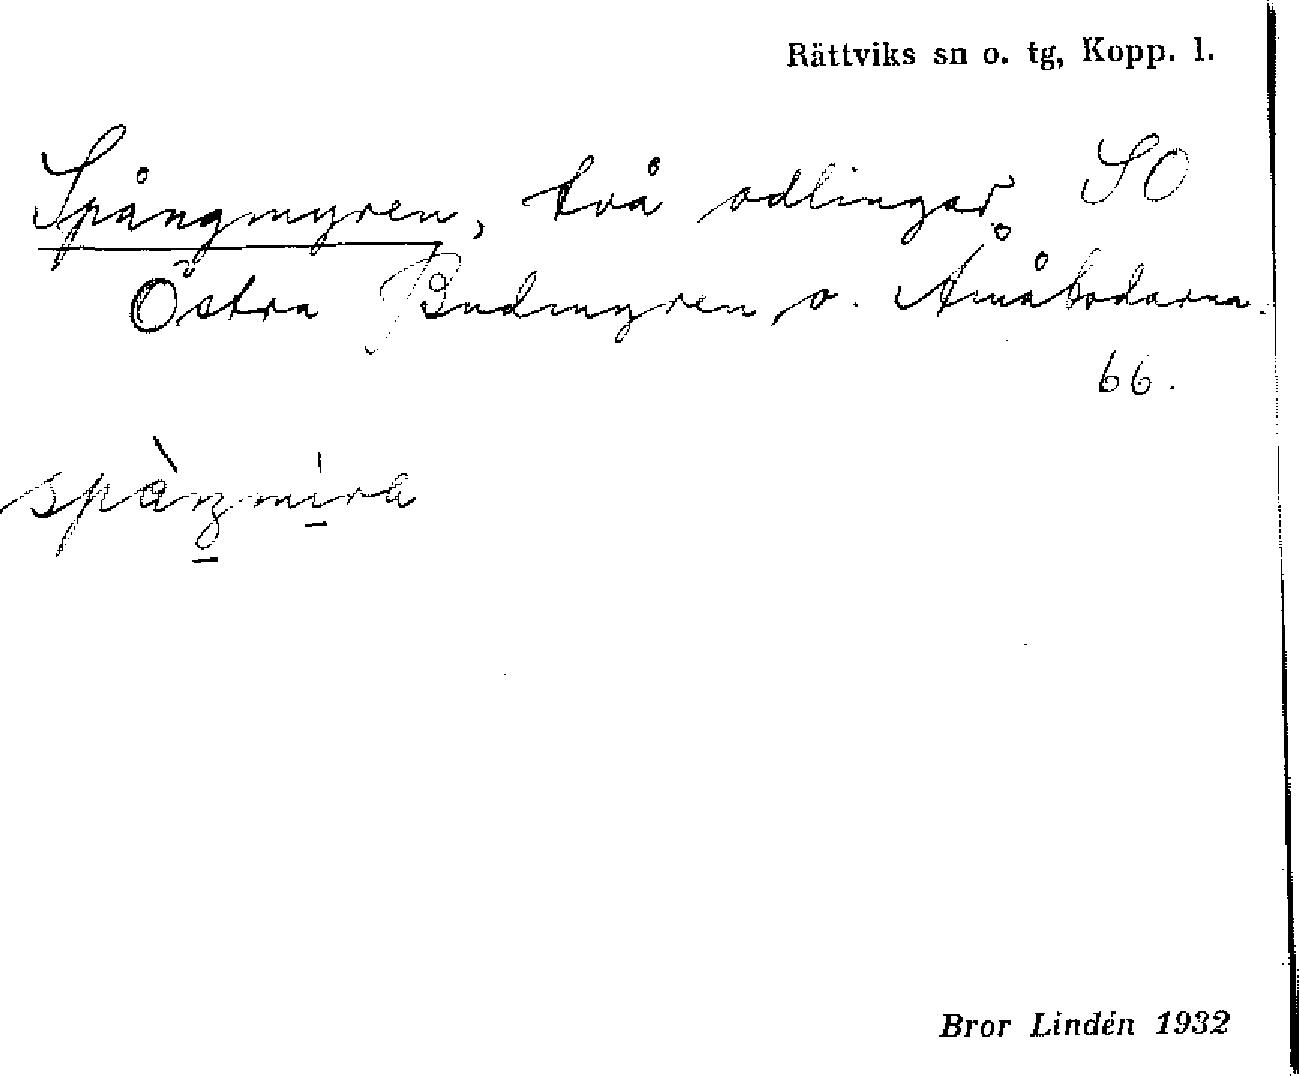 Rättviks sn o. tg, Kopp. l.
Spångmyren, två odlingar SO
Östra Budmyren o. Åmåbodarna.
66.
spàŋmi̱ra
Bror Lindén 1932